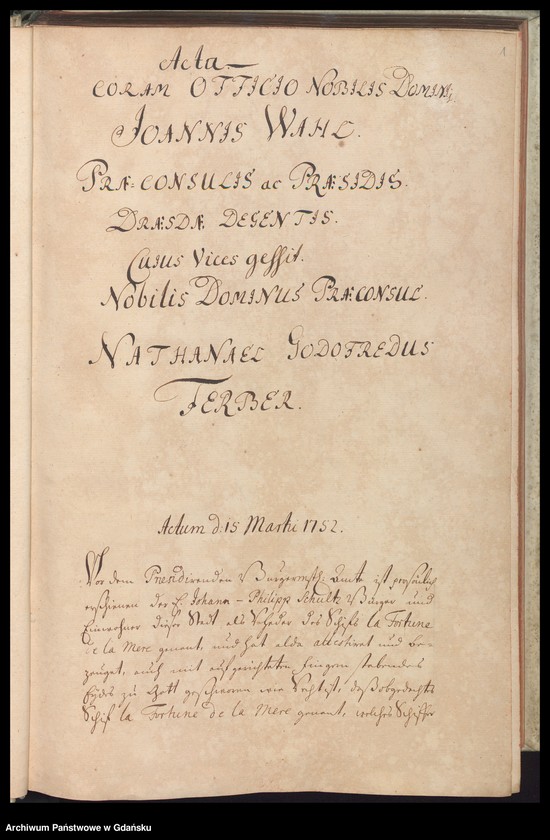 1
Acta
CORAM OFFICIO NOBILIS DOMINI
JOANNIS WAHL.
PRÆ-CONSULIS ac PRÆSIDIS.
DRÆSDÆ DEGENTIS.
Cuius Vices gessit.
Nobilis DOMINUS PRÆCONSUL.
NATHANAEL GODOFREDUS
FERBER.
Actum d: 15 Martii 1752.
Vor dem Præsidirenden Bürgermstl: Amte ist persönlich
erschienen der E. Johann-Philipp Schultz Bürger und
Einwohner dieser Stadt als Rheder des Schifs la Fortune
de la Mere genant, und hat alda attestiret und be-
zeuget, auch mit aufgerichteten fingern stabendes
Eydes zu Gott geschworen wie daß obgedachte
Schif la Fortune de la Mere genant, welches Schiffer
Archiwum Państwowe w Gdańsku